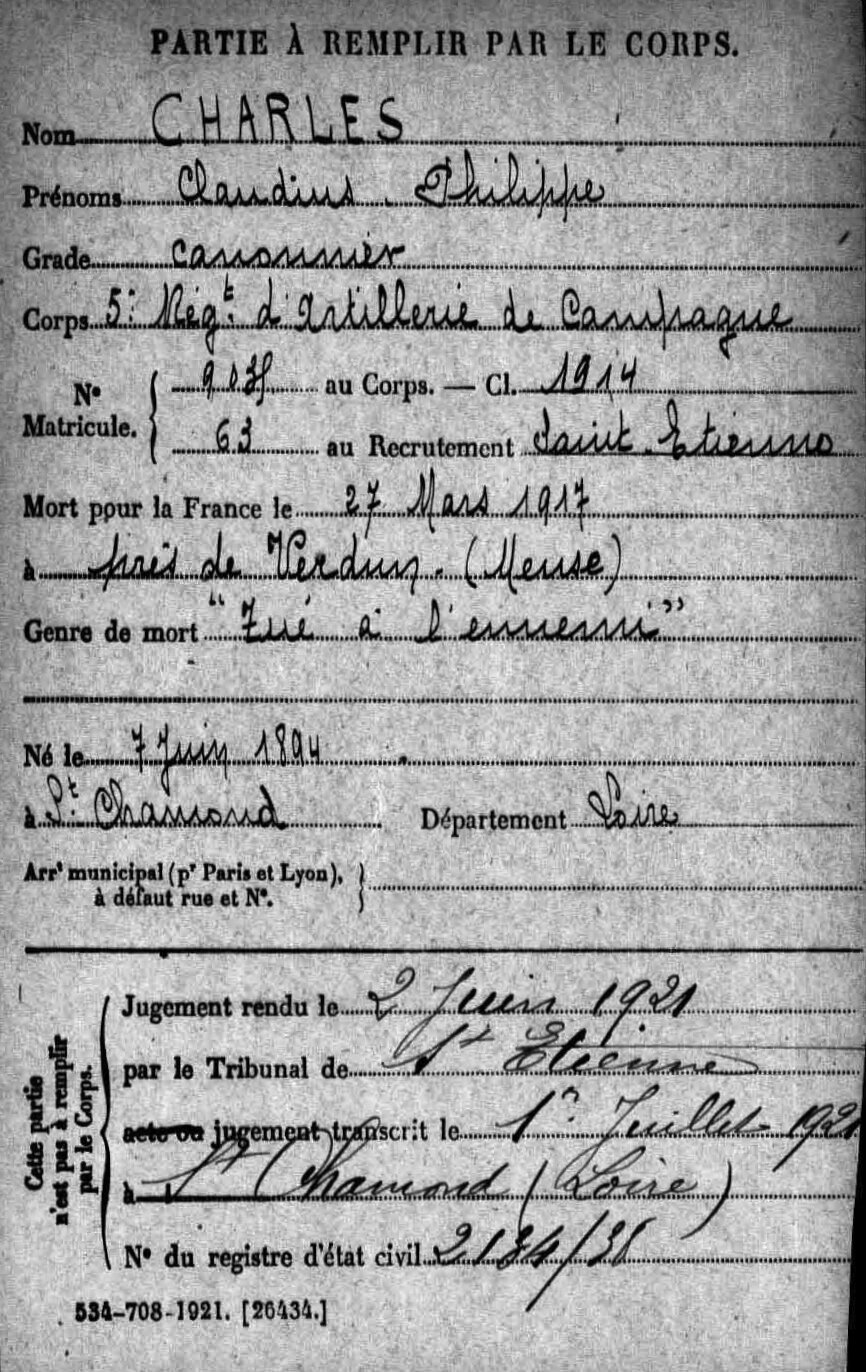 PARTIE À REMPLIR PAR LE CORPS.
Nom CHARLES
Prénoms Claudius Philippe
Grade canonnier
Corps 5e Régt d'Artillerie de Campagne
N° Matricule. au Corps. — Cl. 1914
63 au Recrutement Saint Etienne
Mort pour la France le 27 Mars 1917
à près de Verdun. (Meuse)
Genre de mort "Tué à l'ennemi"
Né le 7 Juin 1894
à St Chamond Département Loire
Arrt municipal (pr Paris et Lyon),
à défaut rue et N°.
Cette partie
n'est pas à remplir
par le Corps.
Jugement rendu le 2 Juin 1921
par le Tribunal de St Etienne
acte ou jugement transcrit le 1er Juillet 1921
à St Chamond (Loire)
N° du registre d'état civil
534-708-1921. [26434.]